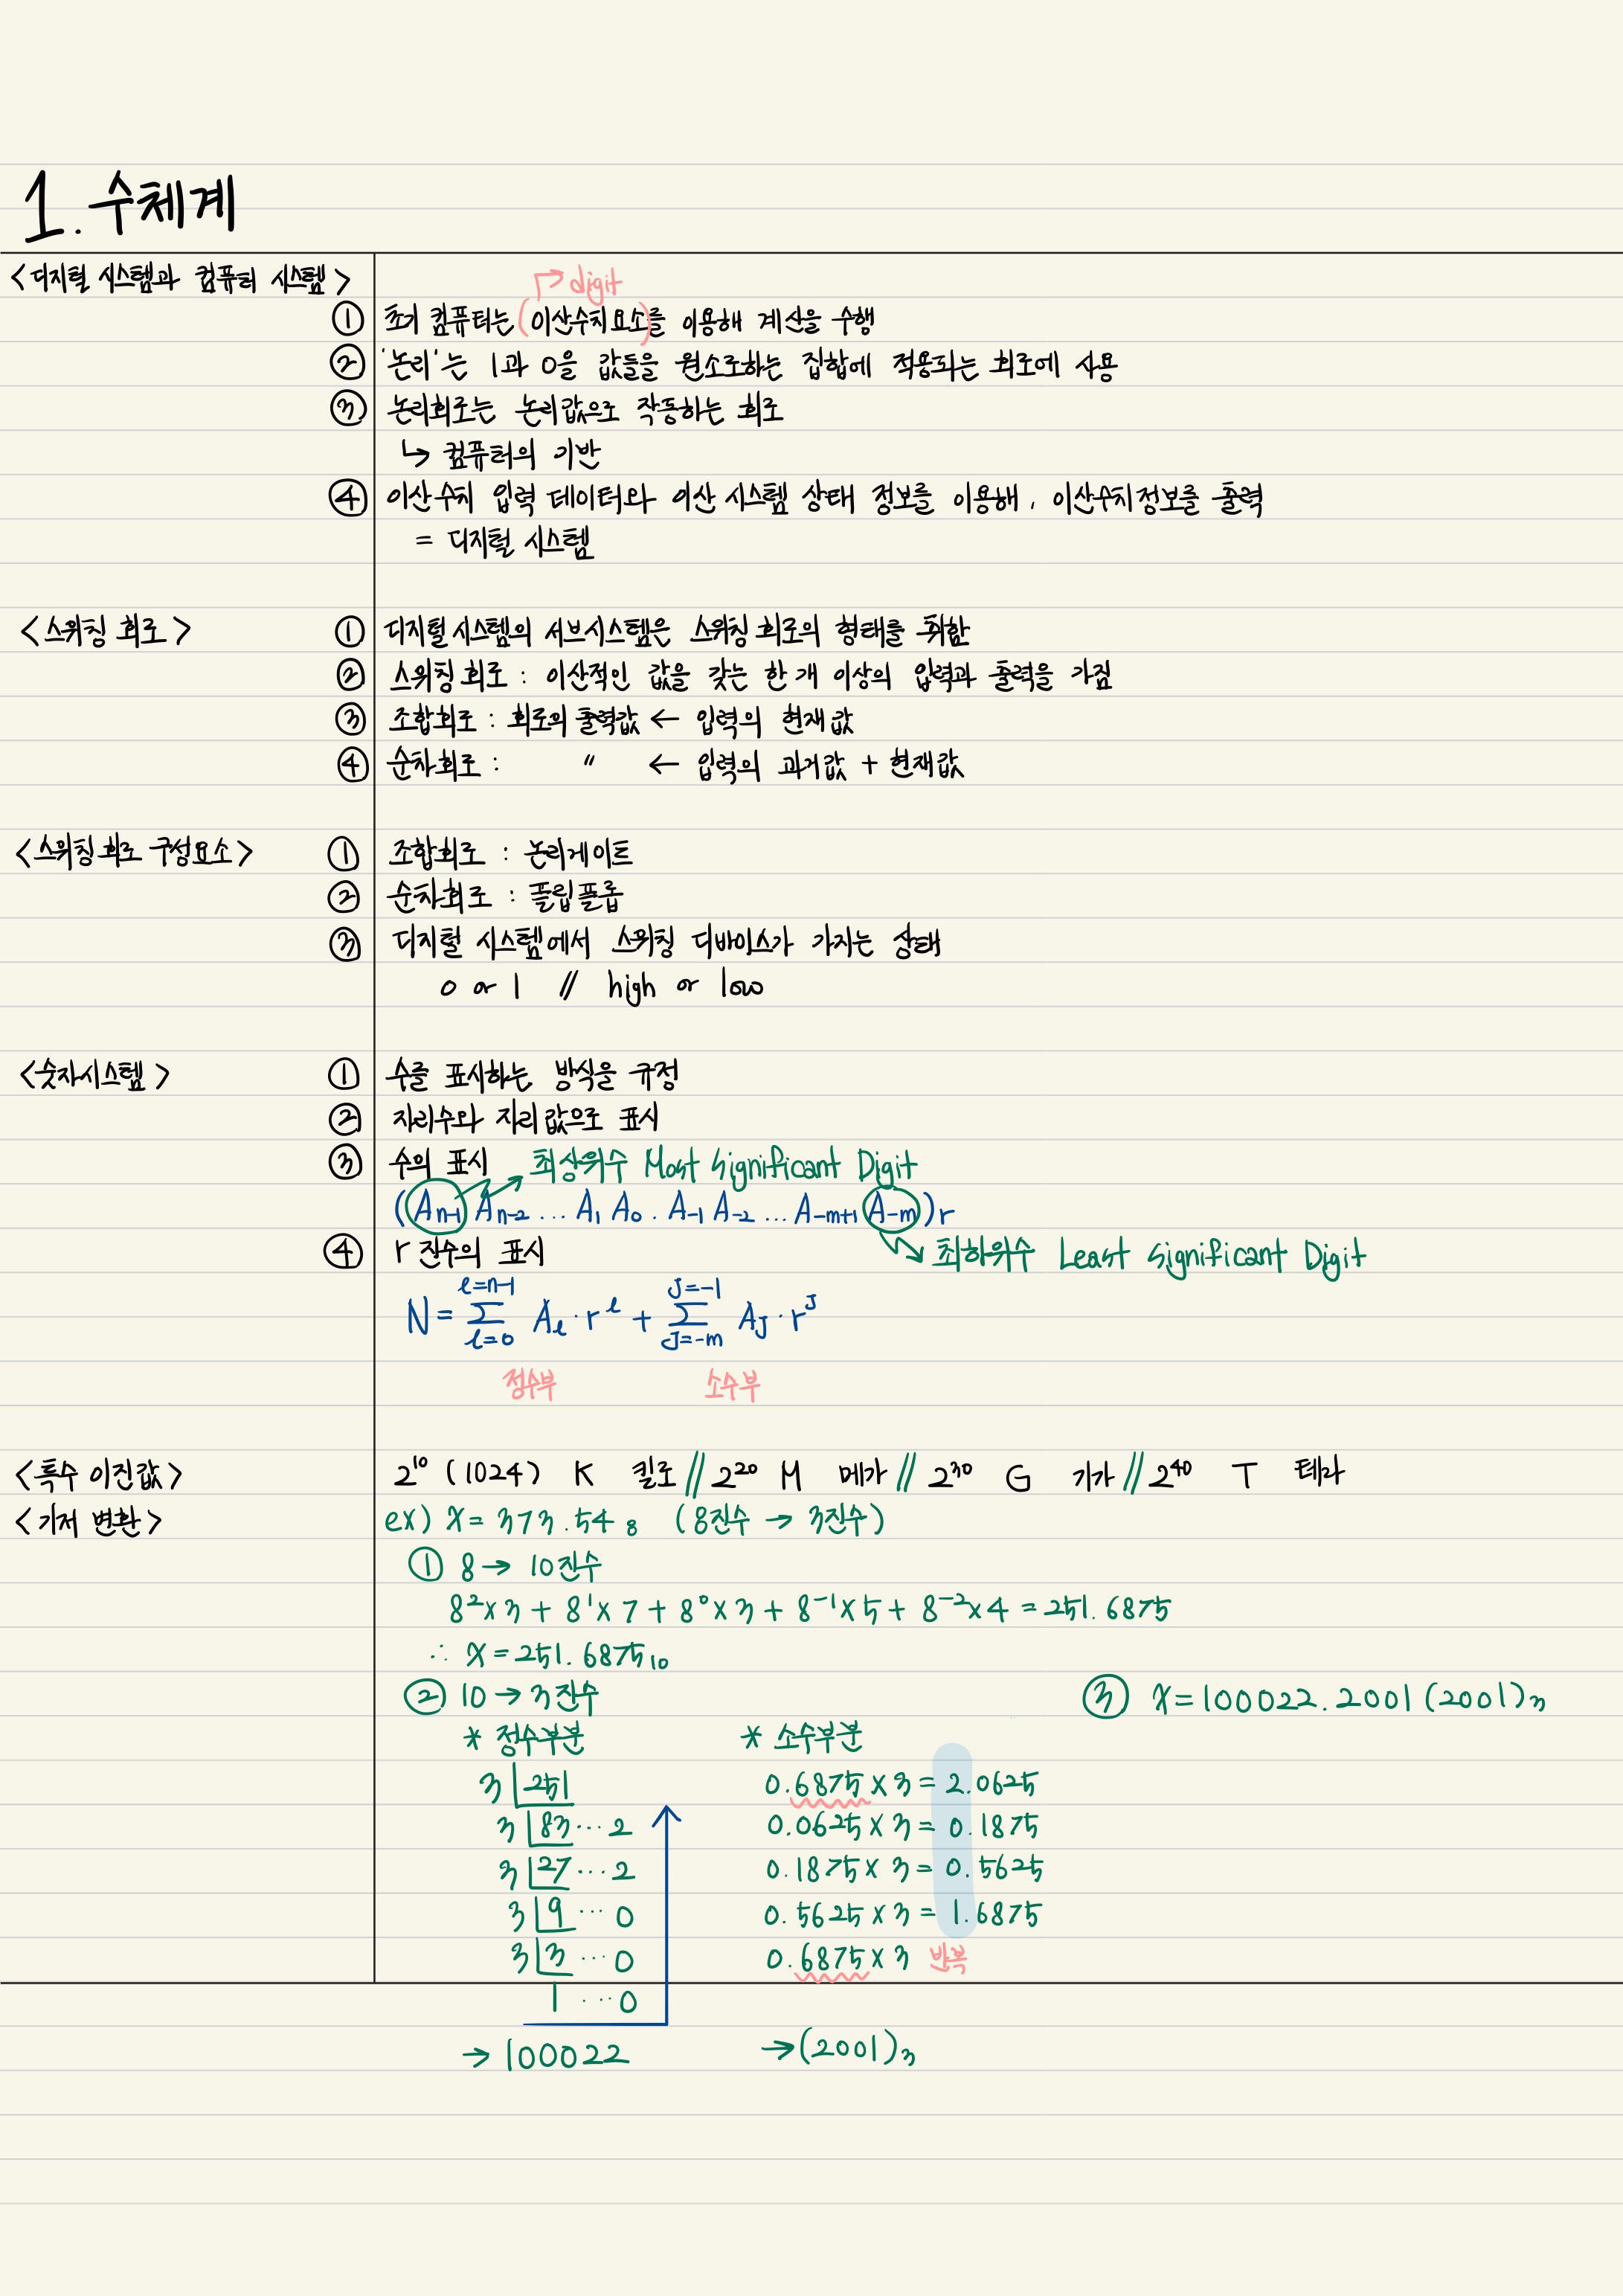 1. 수체계
<디지털 시스템과 컴퓨터 시스템>
→ digit
① 초기 컴퓨터는 (이산수치요소)를 이용해 계산을 수행
② '논리'는 1과 0을 값들을 원소로하는 집합에 적용되는 회로에 사용
③ 논리회로는 논리값으로 작동하는 회로
↳ 컴퓨터의 기반
④ 이산수치 입력 데이터와 이산 시스템 상태 정보를 이용해, 이산수치정보를 출력
= 디지털 시스템
<스위칭 회로> ① 디지털 시스템의 서브시스템은 스위칭 회로의 형태를 취함
② 스위칭 회로 : 이산적인 값을 갖는 한 개 이상의 입력과 출력을 가짐
③ 조합회로 : 회로의 출력값 ← 입력의 현재값
④ 순차회로 : 〃 ← 입력의 과거값 + 현재값
<스위칭 회로 구성요소> ① 조합회로 : 논리게이트
② 순차회로 : 플립플롭
③ 디지털 시스템에서 스위칭 디바이스가 가지는 상태
0 or 1 // high or low
<숫자시스템> ① 수를 표시하는 방식을 규정
② 자리수와 자리값으로 표시
③ 수의 표시 → 최상위수 Most Significant Digit
(A_{n-1} A_{n-2} ... A_1 A_0 . A_{-1} A_{-2} ... A_{-m+1} A_{-m})_r
④ r 진수의 표시 → 최하위수 Least Significant Digit
N = Σ_{i=0}^{i=n-1} A_i · r^i + Σ_{J=-m}^{J=-1} A_J · r^J
정수부 소수부
<특수 이진값> 2^10 (1024) K 킬로 // 2^20 M 메가 // 2^30 G 기가 // 2^40 T 테라
<기저 변환> ex) X = 373.54_8 (8진수 → 3진수)
① 8 → 10진수
8²×3 + 8¹×7 + 8⁰×3 + 8⁻¹×5 + 8⁻²×4 = 251.6875
∴ X = 251.6875_10
② 10 → 3진수 ③ X = 100022.2001(2001)_3
* 정수부분 * 소수부분
3 | 251 0.6875 × 3 = 2.0625
3 | 83 ... 2 0.0625 × 3 = 0.1875
3 | 27 ... 2 0.1875 × 3 = 0.5625
3 | 9 ... 0 0.5625 × 3 = 1.6875
3 | 3 ... 0 0.6875 × 3 반복
1 ... 0
→ 100022 → (2001)_3